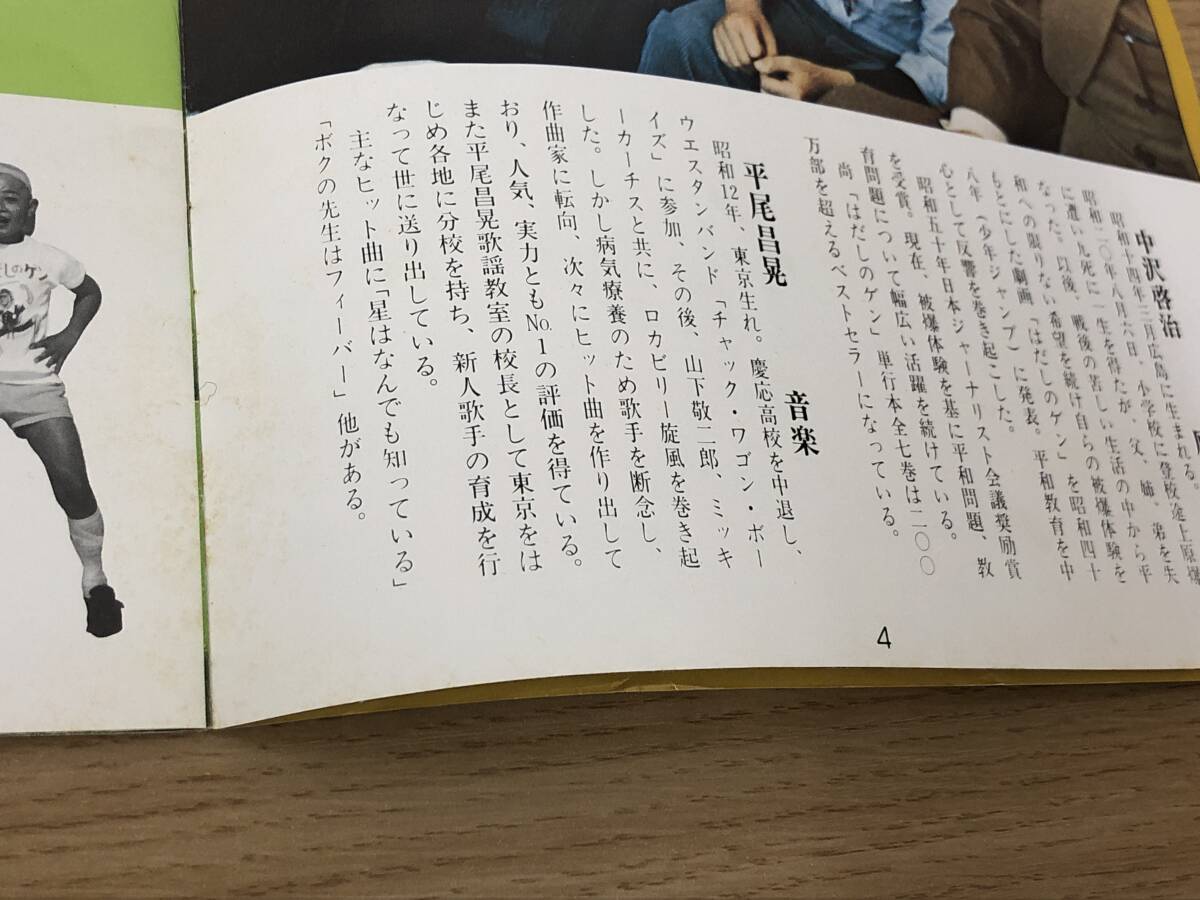 中沢啓治
昭和十四年三月広島に生まれる。
昭和二〇年八月六日、小学校に登校途上原爆
に遭い九死に一生を得たが、父、姉、弟を失
なった。以後、戦後の苦しい生活の中から平
和への限りない希望を続け自らの被爆体験を
もとにした劇画「はだしのゲン」を昭和四十
八年（少年ジャンプ）に発表。平和教育を中
心として反響を巻き起こした。
昭和五十年日本ジャーナリスト会議奨励賞
を受賞。現在、被爆体験を基に平和問題、教
育問題について幅広い活躍を続けている。
尚「はだしのゲン」単行本全七巻は二〇〇
万部を超えるベストセラーになっている。
音楽
平尾昌晃
昭和12年、東京生れ。慶応高校を中退し、
ウエスタンバンド「チャック・ワゴン・ボー
イズ」に参加、その後、山下敬二郎、ミッキ
ーカーチスと共に、ロカビリー旋風を巻き起
した。しかし病気療養のため歌手を断念し、
作曲家に転向、次々にヒット曲を作り出して
おり、人気、実力ともNo.1の評価を得ている。
また平尾昌晃歌謡教室の校長として東京をは
じめ各地に分校を持ち、新人歌手の育成を行
なって世に送り出している。
主なヒット曲に「星はなんでも知っている」
「ボクの先生はフィーバー」他がある。
4
しのゲン